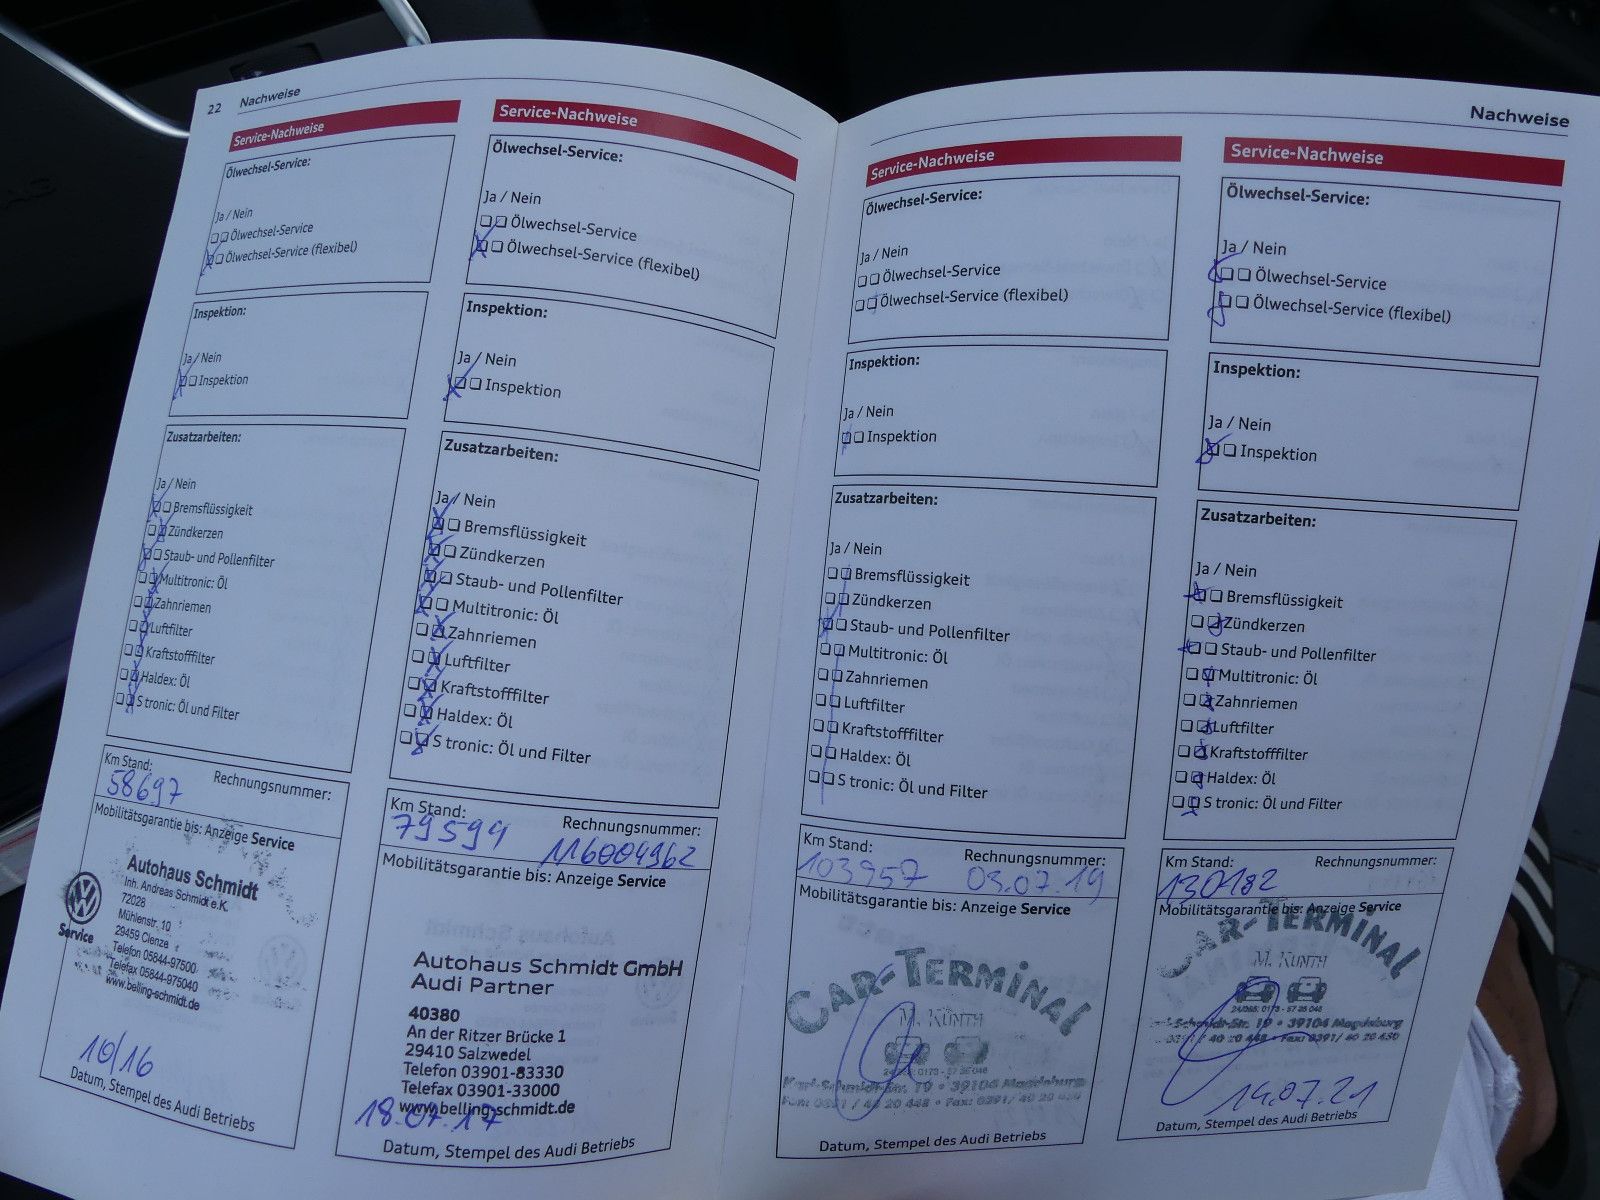 22 Nachweise
Service-Nachweise
Ölwechsel-Service:
Ja / Nein
Ölwechsel-Service
Ölwechsel-Service (flexibel)
Inspektion:
Ja / Nein
Inspektion
Zusatzarbeiten:
Ja / Nein
Bremsflüssigkeit
Zündkerzen
Staub- und Pollenfilter
Multitronic: Öl
Zahnriemen
Luftfilter
Kraftstofffilter
Haldex: Öl
S tronic: Öl und Filter
Km Stand: Rechnungsnummer:
58697
Mobilitätsgarantie bis: Anzeige Service
Autohaus Schmidt
Inh. Andreas Schmidt e.K.
72028
Mühlenstr. 10
29459 Clenze
Telefon 05844-97500
Telefax 05844-975040
www.belling-schmidt.de
Service
10/16
Datum, Stempel des Audi Betriebs
Service-Nachweise
Ölwechsel-Service:
Ja / Nein
Ölwechsel-Service
Ölwechsel-Service (flexibel)
Inspektion:
Ja / Nein
Inspektion
Zusatzarbeiten:
Ja / Nein
Bremsflüssigkeit
Zündkerzen
Staub- und Pollenfilter
Multitronic: Öl
Zahnriemen
Luftfilter
Kraftstofffilter
Haldex: Öl
S tronic: Öl und Filter
Km Stand: Rechnungsnummer:
79599 116004962
Mobilitätsgarantie bis: Anzeige Service
Autohaus Schmidt GmbH
Audi Partner
40380
An der Ritzer Brücke 1
29410 Salzwedel
Telefon 03901-83330
Telefax 03901-33000
www.belling-schmidt.de
18.07.17
Datum, Stempel des Audi Betriebs
Nachweise
Service-Nachweise
Ölwechsel-Service:
Ja / Nein
Ölwechsel-Service
Ölwechsel-Service (flexibel)
Inspektion:
Ja / Nein
Inspektion
Zusatzarbeiten:
Ja / Nein
Bremsflüssigkeit
Zündkerzen
Staub- und Pollenfilter
Multitronic: Öl
Zahnriemen
Luftfilter
Kraftstofffilter
Haldex: Öl
S tronic: Öl und Filter
Km Stand: Rechnungsnummer:
103957 03.07.19
Mobilitätsgarantie bis: Anzeige Service
CAR-TERMINAL
M. KÜNTH
Karl-Schmidt-Str. 19 • 39104 Magdeburg
0391 / 40 20 448 • Fax: 0391/ 40 20 450
Datum, Stempel des Audi Betriebs
Service-Nachweise
Ölwechsel-Service:
Ja / Nein
Ölwechsel-Service
Ölwechsel-Service (flexibel)
Inspektion:
Ja / Nein
Inspektion
Zusatzarbeiten:
Ja / Nein
Bremsflüssigkeit
Zündkerzen
Staub- und Pollenfilter
Multitronic: Öl
Zahnriemen
Luftfilter
Kraftstofffilter
Haldex: Öl
S tronic: Öl und Filter
Km Stand: Rechnungsnummer:
130182
Mobilitätsgarantie bis: Anzeige Service
CAR-TERMINAL
M. KÜNTH
-Schmidt-Str. 19 • 39104 Magdeburg
0391 / 40 20 448 • Fax: 0391/ 40 20 450
14.07.21
Datum, Stempel des Audi Betriebs